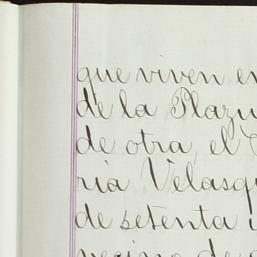 que viven en
de la Plazu
de otra, el
ria Velasqu
de setenta
vecino de